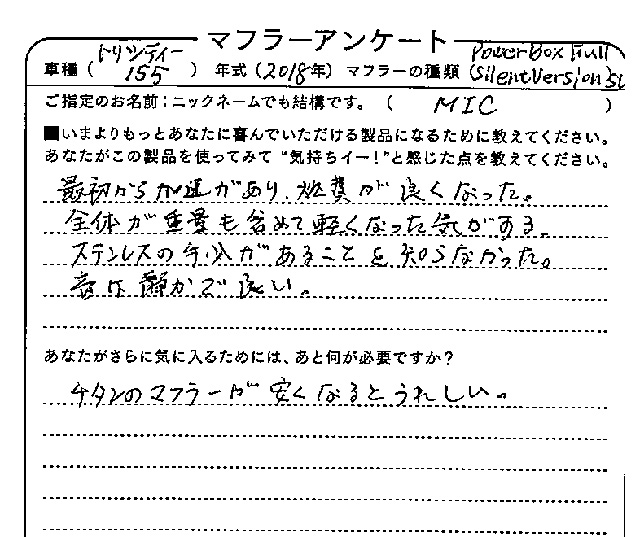 マフラーアンケート
車種(トリシティー155) 年式(2018年) マフラーの種類(PowerBox Full SilentVersion SL
ご指定のお名前:ニックネームでも結構です。( MIC )
■いまよりもっとあなたに喜んでいただける製品になるために教えてください。
あなたがこの製品を使ってみて“気持ちイー!”と感じた点を教えてください。
最初から加速があり、燃費が良くなった。
全体が重量も含めて軽くなった気がする。
ステンレスの手入があることを知らなかった。
音は静かで良い。
あなたがさらに気に入るためには、あと何が必要ですか?
チタンのマフラーが安くなるとうれしい。